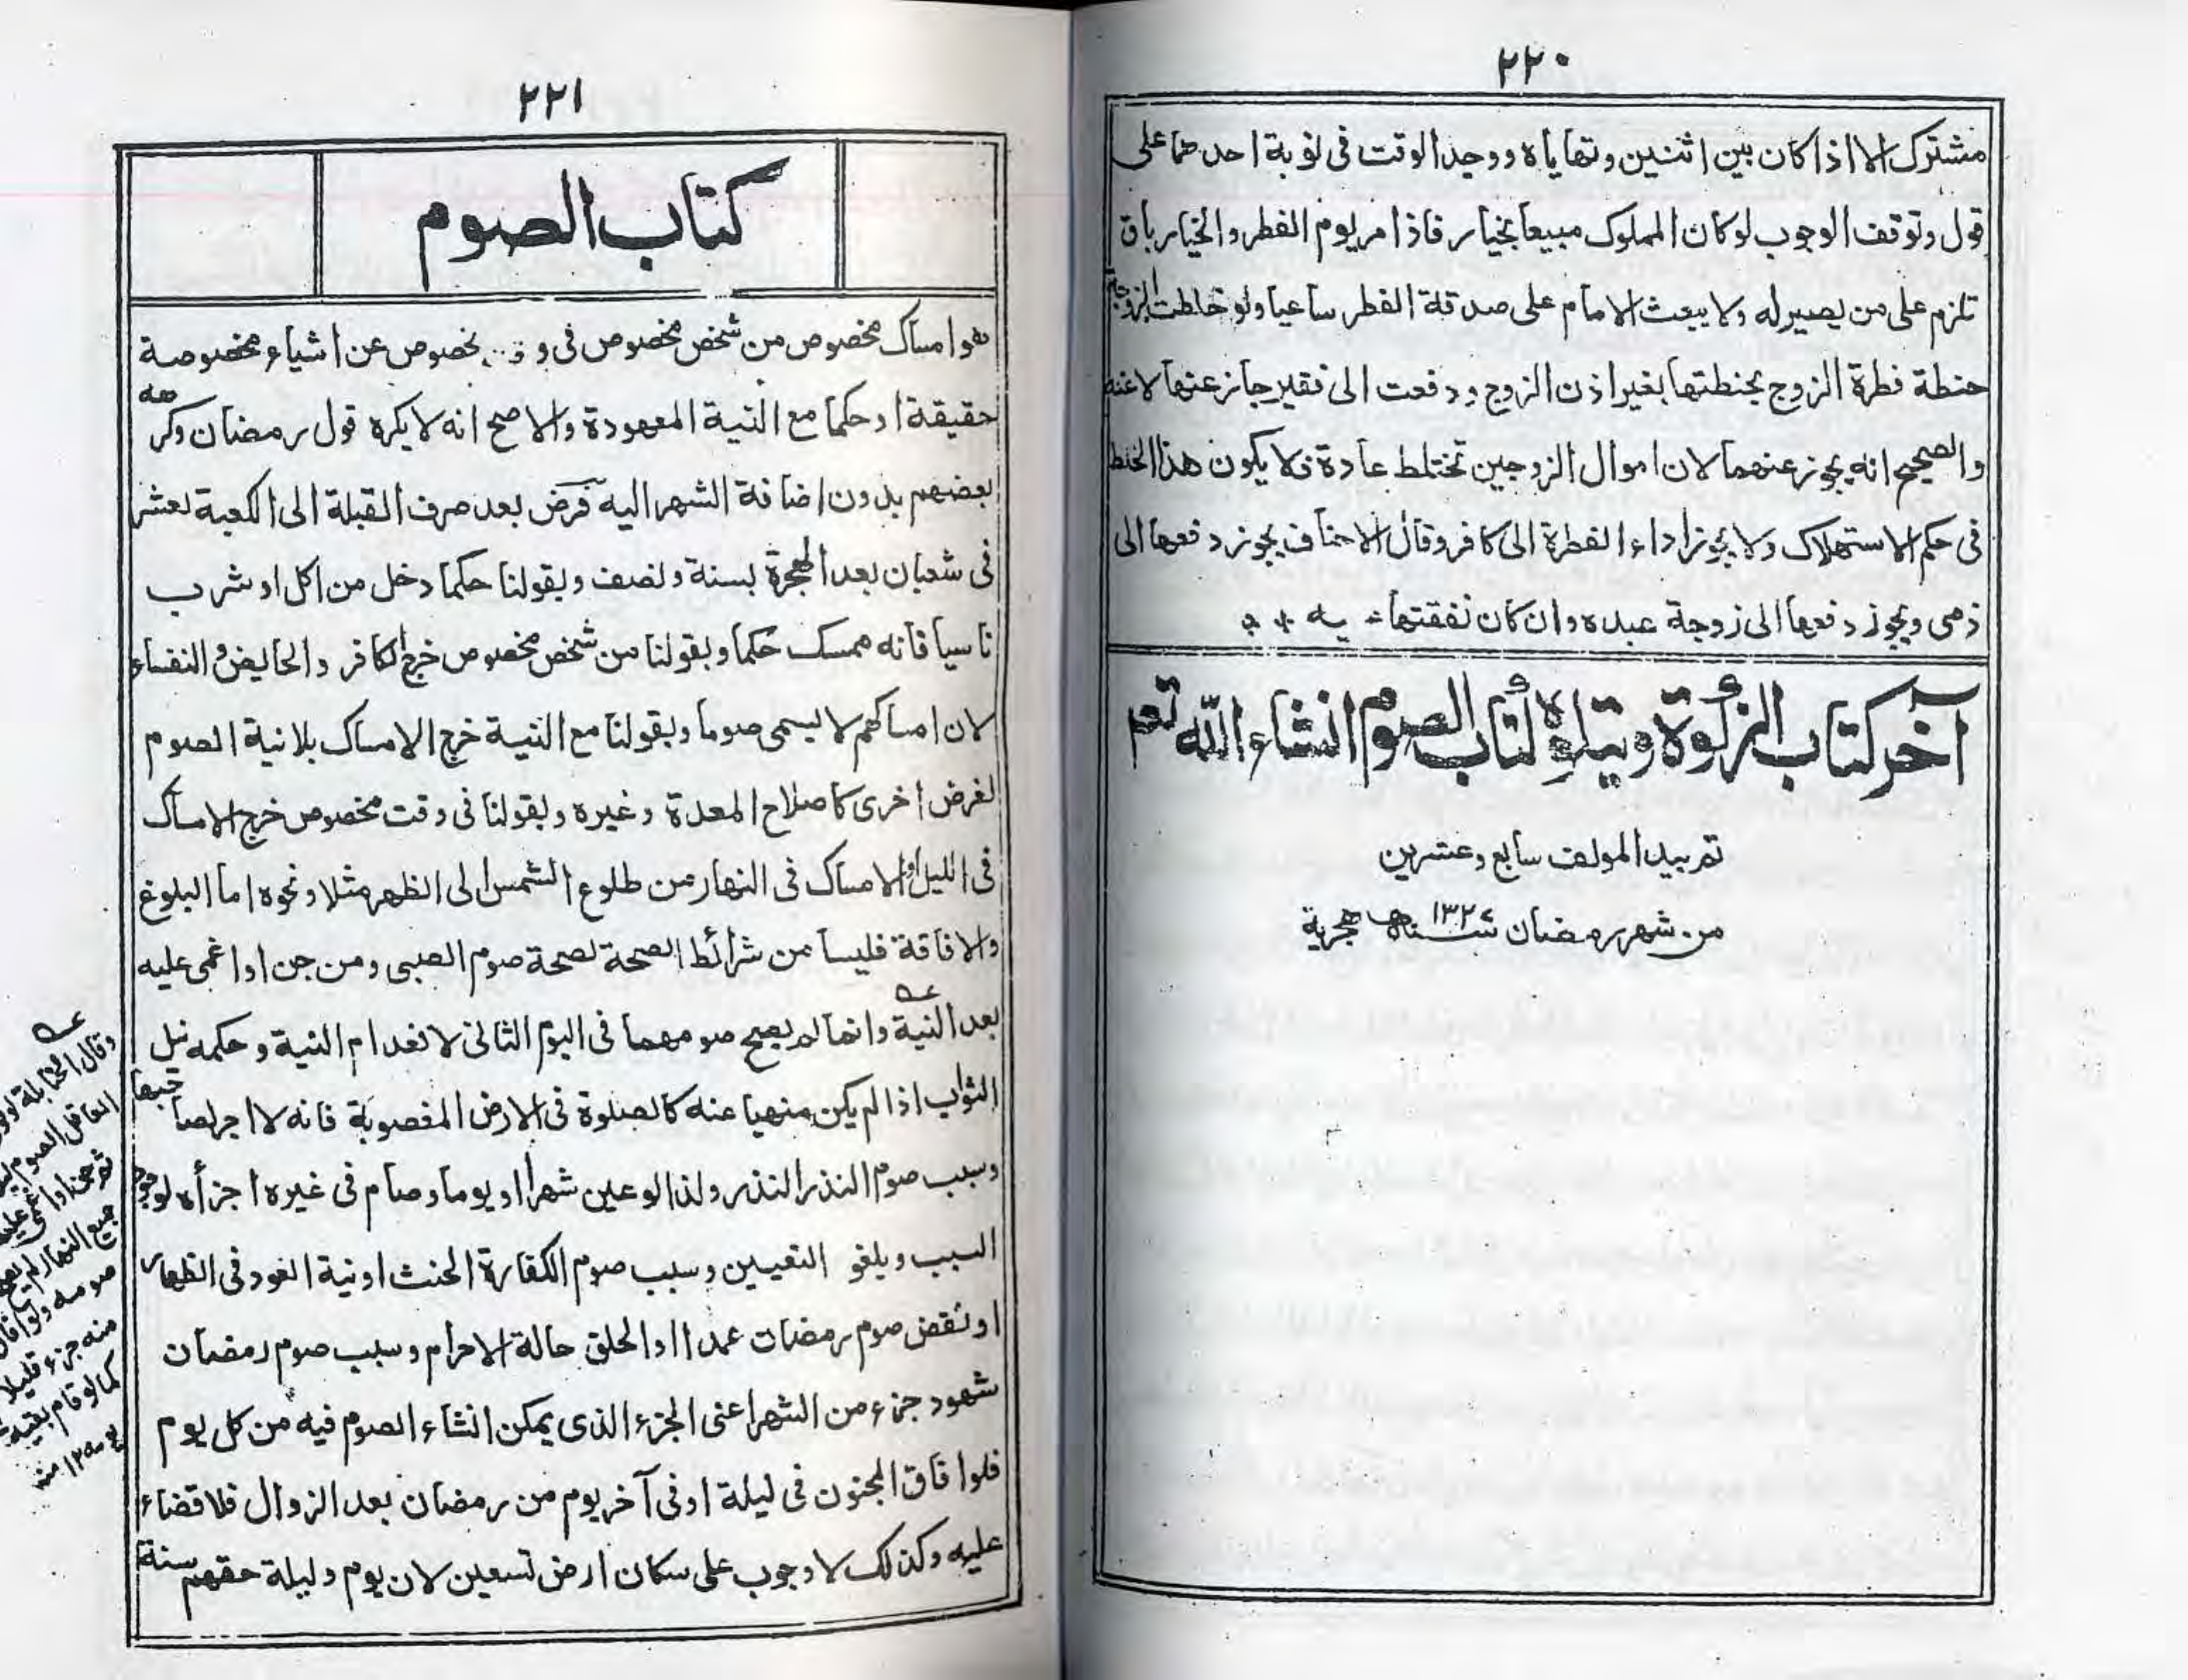 ٢٢٠
مشترك الا اذا كان بين اثنين وتهاياه ووجد الوقت فى نوبة احدهما على
قول وتوقف الوجوب لو كان المملوك مبيعا بخيار فاذا مر يوم الفطر والخيار باق
تلزم على من يصير له ولا يبعث الامام على صدقة الفطر ساعيا ولو خلطت الزوجة
حنطة فطرة الزوج بحنطتها بغير اذن الزوج ودفعت الى فقير جاز عنها لا عنه
والصحيح انه يجوز عنهما لان اموال الزوجين تختلط عادة فلا يكون هذا الخلط
فى حكم الاستهلاك ولا يجوز اداء الفطرة الى كافر وقال الاحناف يجوز دفعها الى
ذمى ويجوز دفعها الى زوجة عبده وان كان نفقتها
آخر كتاب الزكوة ويتلوه كتاب الصوم انشاء الله تعم
تم بيد المولف سابع وعشرين
من شهر رمضان سنة ١٣٢٧ هجرية
٢٢١
كتاب الصوم
هو امساك مخصوص من شخص مخصوص فى مخصوص عن اشياء مخصوصة
حقيقة او حكما مع النية المعهودة والاصح انه لا يكره قول رمضان وكرهه
بعضهم بدون اضافة الشهر اليه فرض بعد صرف القبلة الى الكعبة لعشر
فى شعبان بعد الهجرة بسنة ونصف وبقولنا حكما دخل من اكل او شرب
ناسيا فانه ممسك حكما وبقولنا من شخص مخصوص خرج الكافر والحايض والنفساء
لان امساكهم لا يسمى صوما وبقولنا مع النية خرج الامساك بلا نية الصوم
لغرض اخرى كاصلاح المعدة وغيره وبقولنا فى وقت مخصوص خرج الامساك
فى الليل او الامساك فى النهار من طلوع الشمس الى الظهر مثلا ونحوه اما البلوغ
والافاقة فليسا من شرائط الصحة لصحة صوم الصبى ومن جن او اغمى عليه
بعد النية وانما لم يصح صومهما فى اليوم الثانى لانعدام النية وحكمه نيل
الثواب اذا لم يكن منهيا عنه كالصلوة فى الارض المغصوبة فانه لا اجر لصاحبها
وسبب صوم النذر النذر ولذا لو عين شهرا او يوما وصام فى غيره اجزأه لوجود
السبب ويلغو التعيين وسبب صوم الكفارة الحنث او نية العود فى الظهار
او نقض صوم رمضان عمدا او الحلق حالة الاحرام وسبب صوم رمضان
شهود جزء من الشهر اعنى الجزء الذى يمكن انشاء الصوم فيه من كل يوم
فلو افاق المجنون فى ليلة او فى آخر يوم من رمضان بعد الزوال فلا قضاء
عليه وكذلك لا وجوب على سكان ارض تسعين لان يوم وليلة حقهم سنة
وقال الحنابلة لو نوى
العاقل الصوم
ثم جن او اغمى عليه
جميع النهار لم يصح
صومه ولو افاق
منه جزء قليلا
كما لو قام بقية
يومه ١٢ منه